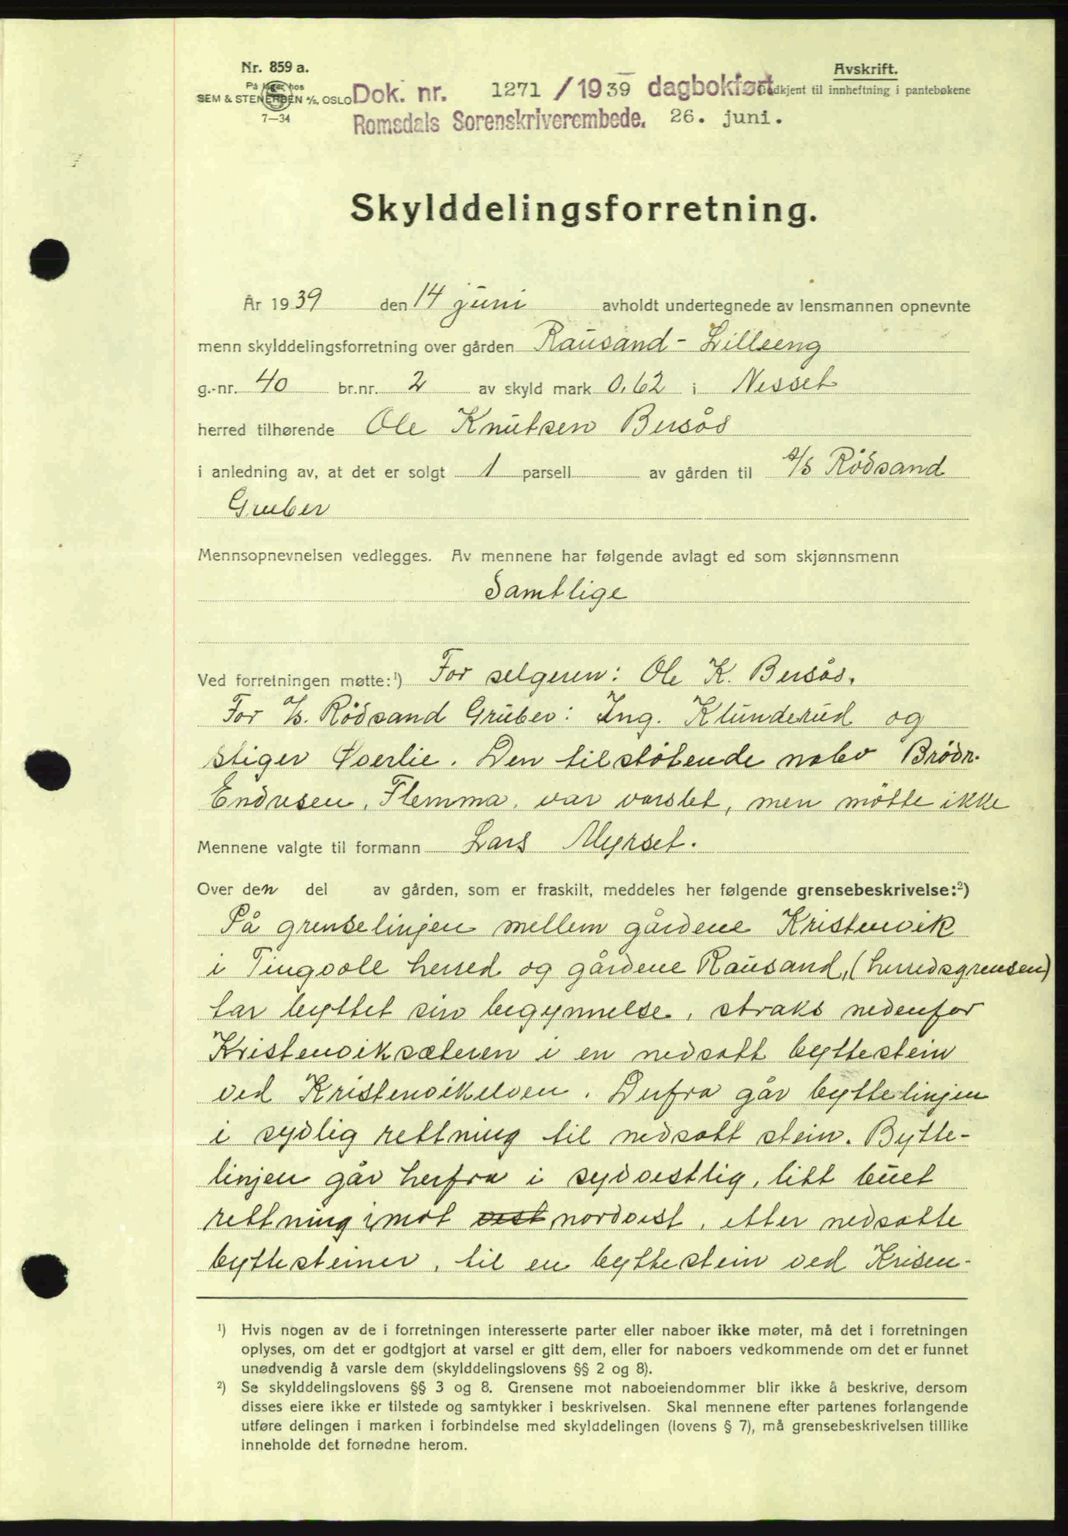 Nr. 859 a.
På lager hos
SEM & STENERSEN A/S, OSLO
7—34
Dok. nr. 1271 / 1939 dagbokført
Romsdals Sorenskriverembede. 26. juni.
Avskrift.
Godkjent til innheftning i pantebøkene
Skylddelingsforretning.
År 1939 den 14 juni avholdt undertegnede av lensmannen opnevnte
menn skylddelingsforretning over gården Rausand - Lilleeng
g.-nr. 40 br.nr. 2 av skyld mark 0.62 i Nesset
herred tilhørende Ole Knutsen Bersås
i anledning av, at det er solgt 1 parsell av gården til A/S Rødsand
Gruber
Mennsopnevnelsen vedlegges. Av mennene har følgende avlagt ed som skjønnsmenn
Samtlige
Ved forretningen møtte:¹) For selgeren: Ole K. Bersås.
For A/S. Rødsand Gruber: Ing. Klunderud og
stiger Øverlie. Den tilstøtende nabo Brødr.
Endresen, Flemma, var varslet, men møtte ikke
Mennene valgte til formann Lars Myrset.
Over den del av gården, som er fraskilt, meddeles her følgende grensebeskrivelse:²)
På grenselinjen mellem gårdene Kristenvik
i Tingvoll herred og gårdene Rausand, (herredsgrensen)
tar byttet sin begynnelse, straks nedenfor
Kristenviksæteren i en nedsatt byttestein
ved Kristenvikelven. Derfra går byttelinjen
i sydlig rettning til nedsatt stein. Bytte-
linjen går herfra i sydvestlig, litt buet
rettning imot vest nordvest, etter nedsatte
byttesteiner, til en byttestein ved Krisen-
¹) Hvis nogen av de i forretningen interesserte parter eller naboer ikke møter, må det i forretningen
oplyses, om det er godtgjort at varsel er gitt dem, eller for naboers vedkommende om det er funnet
unødvendig å varsle dem (skylddelingslovens §§ 2 og 8).
²) Se skylddelingslovens §§ 3 og 8. Grensene mot naboeiendommer blir ikke å beskrive, dersom
disses eiere ikke er tilstede og samtykker i beskrivelsen. Skal mennene efter partenes forlangende
utføre delingen i marken i forbindelse med skylddelingen (lovens § 7), må grensebeskrivelsen tillike
inneholde det fornødne herom.